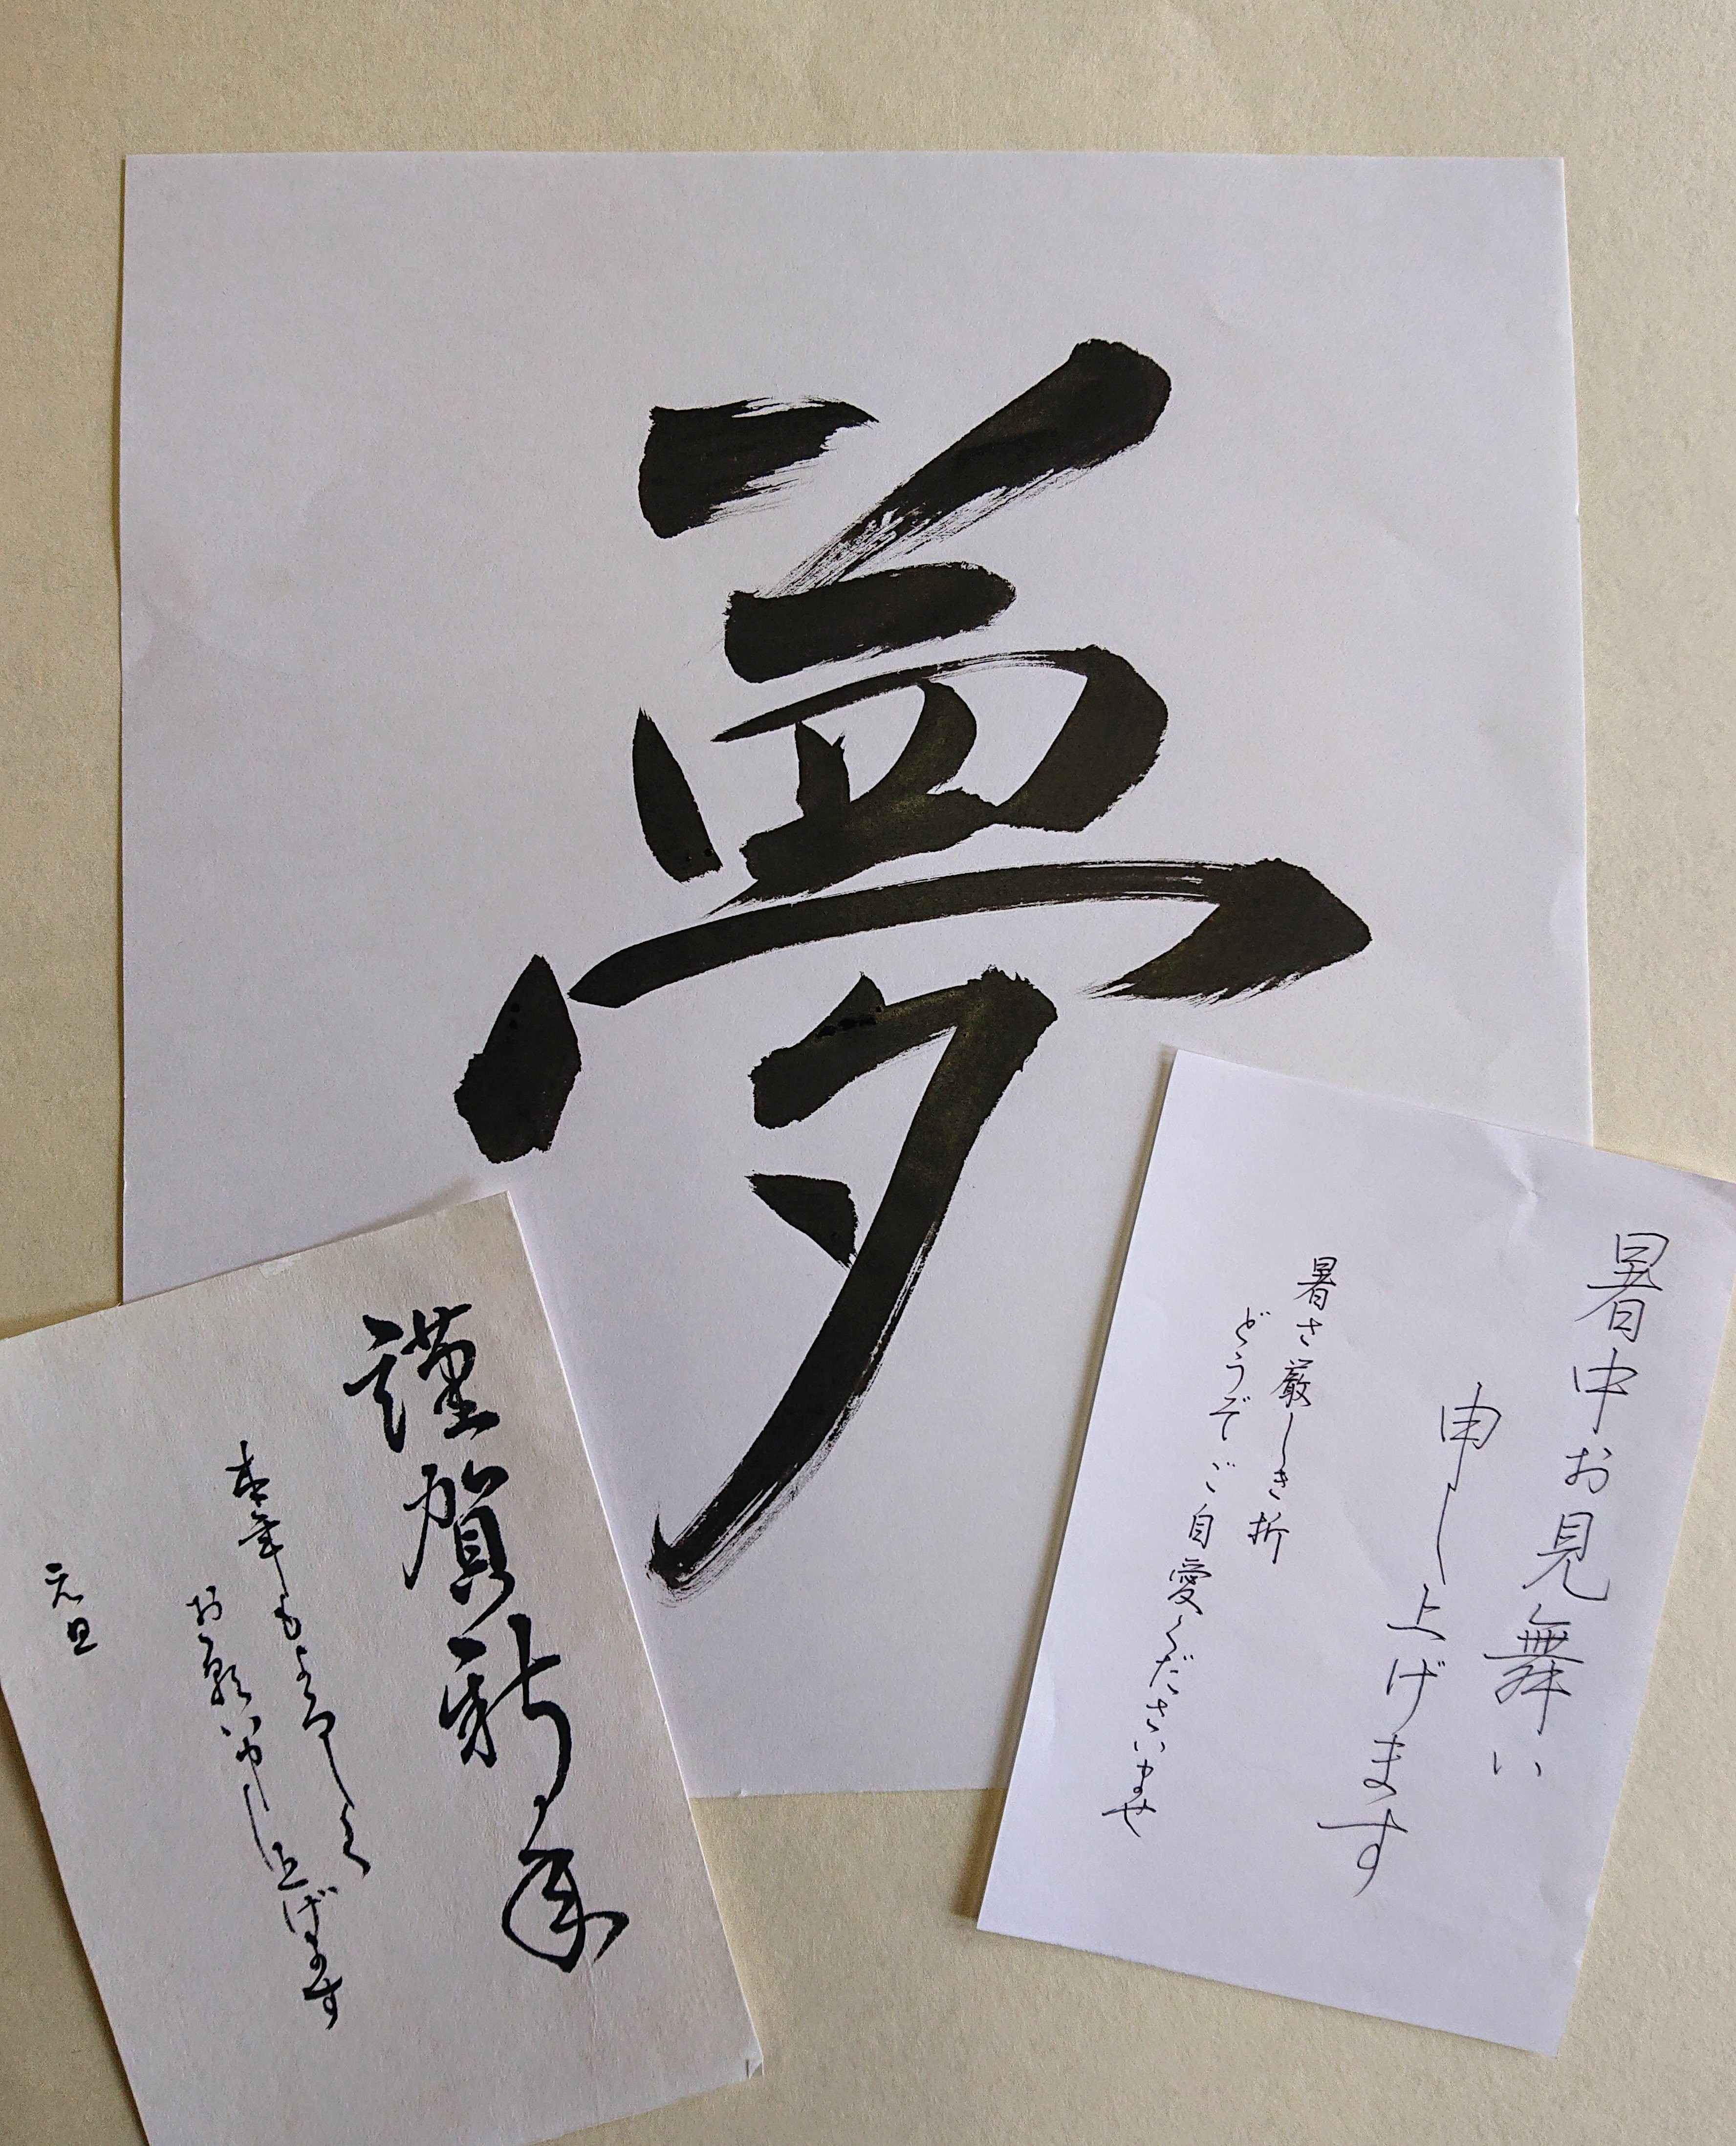 夢
暑中お見舞い
申し上げます
暑さ厳しき折
どうぞご自愛くださいませ
謹賀新年
本年もよろしく
お願い申し上げます
元旦